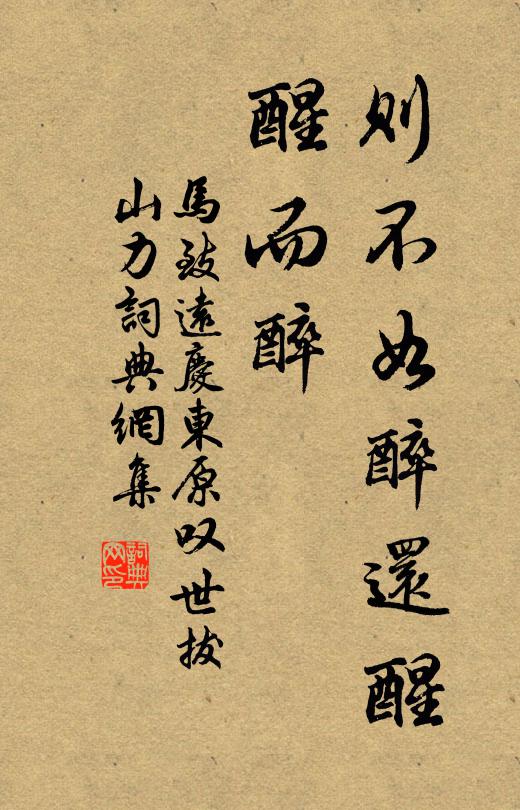 則不如醉還醒
醒而醉
馬致遠慶東原叹世拔
山力詞典網集
詞典
网印